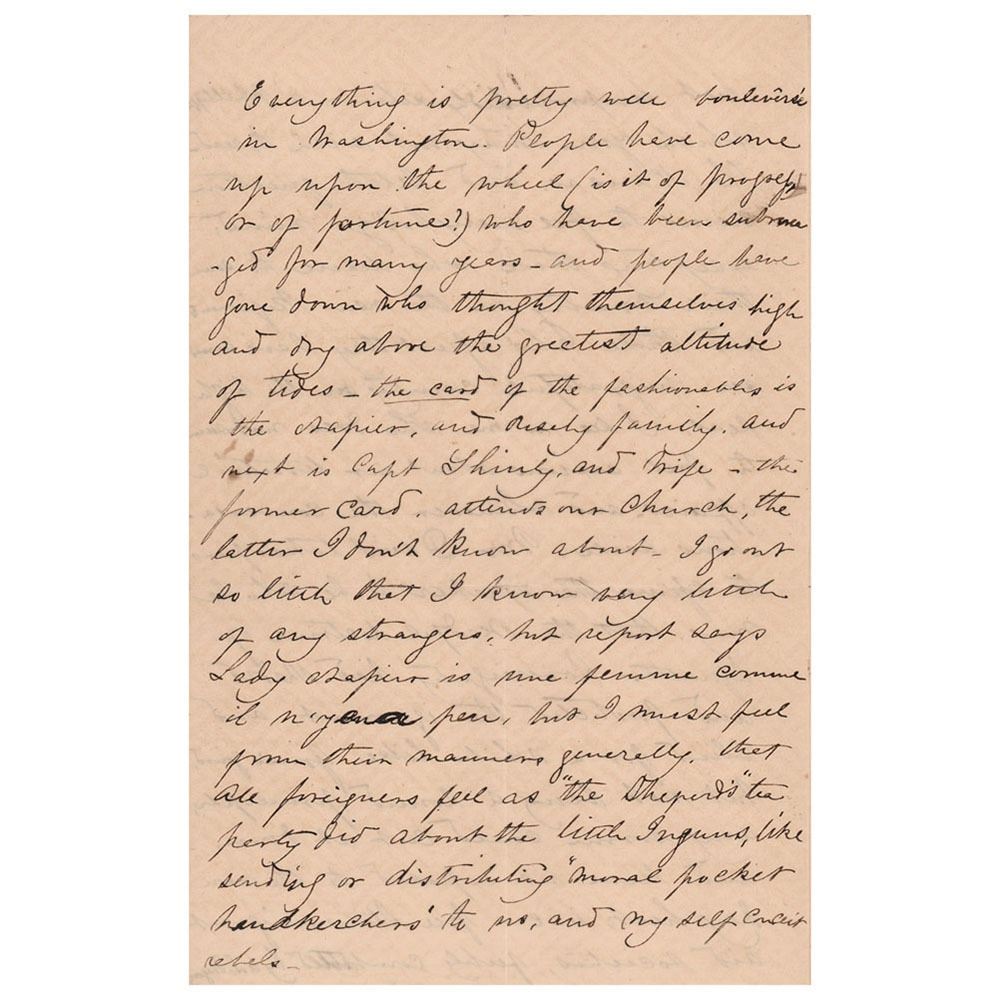 Everything is pretty well bouleversé
in Washington. People have come
up upon the wheel (is it of progress
or of fortune?) who have been submer
-ged for many years - and people have
gone down who thought themselves high
and dry above the greatest altitude
of tides - the card of the fashionables is
the Napier, and family. and
next is Capt and Wife - the
former card. attends our Church, the
latter I don't know about - I go out
so little that I know very little
of any strangers, but report says
Lady Napier is une femme comme
il n'y en a peu, but I must feel
from their manners generally, that
all foreigners feel as "the Sheperd's" tea
party did about the little Inguns, like
sending or distributing "moral pocket
handkerchers" to us, and my self conceit
rebels -